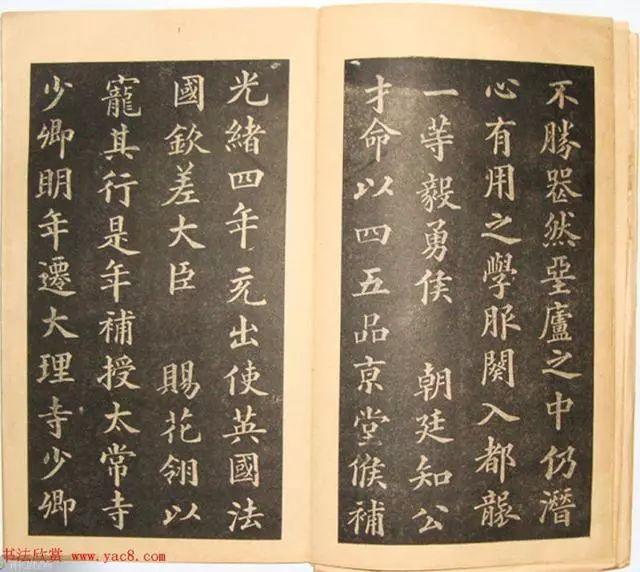 不勝喪然堊廬之中仍潛
心有用之學服闋入都襲
一等毅勇侯 朝廷知公
才命以四五品京堂候補
光緒四年充出使英國法
國欽差大臣 賜花翎以
寵其行是年補授太常寺
少卿明年遷大理寺少卿
书法欣赏 www.yac8.com